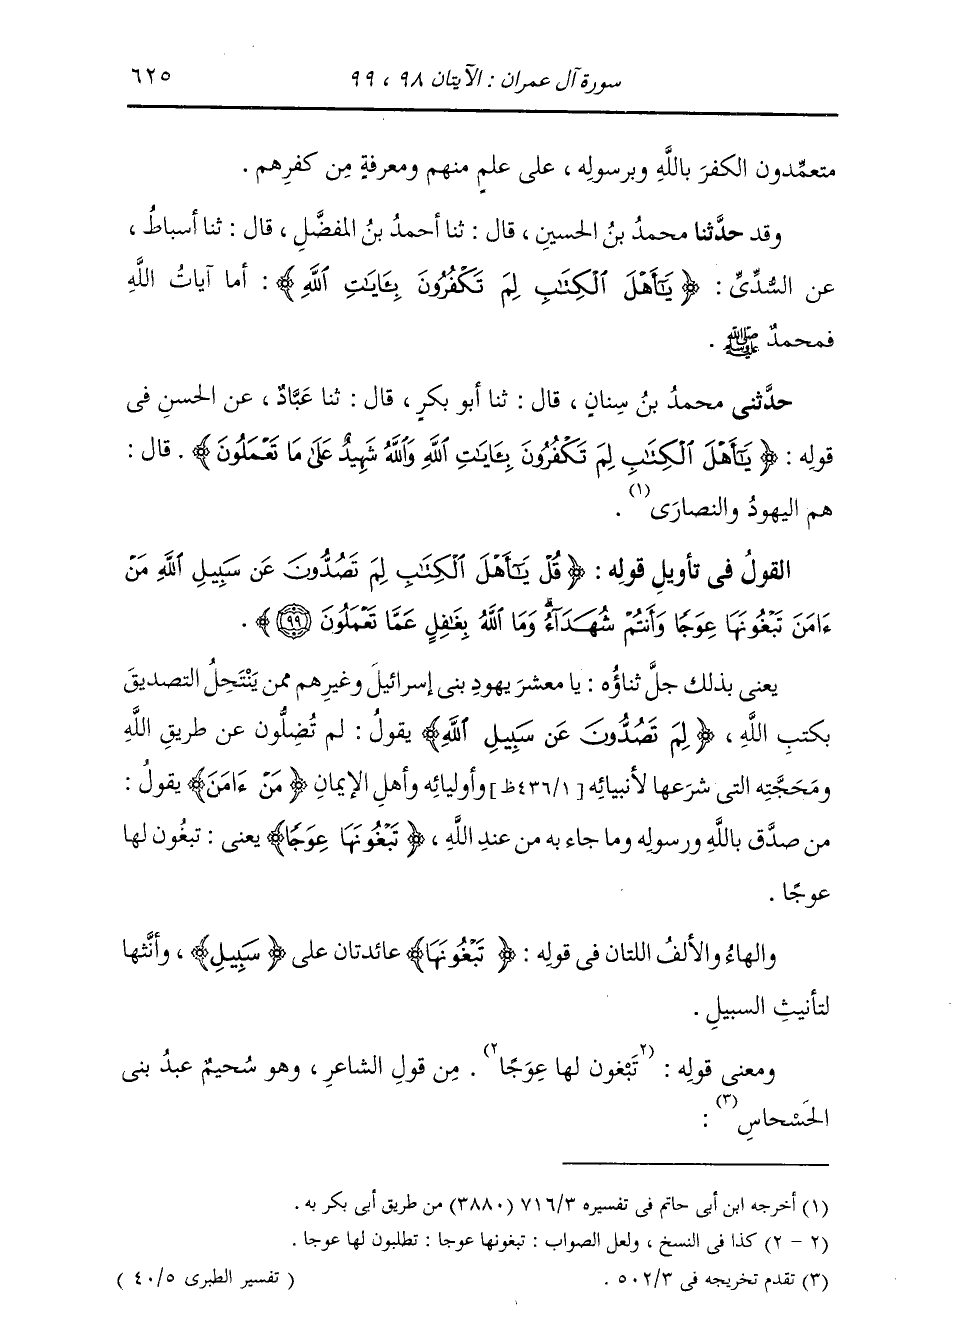 سورة آل عمران : الآيتان ٩٨ ، ٩٩
٦٢٥
متعمِّدون الكفرَ باللَّهِ وبرسولِه ، على علمٍ منهم ومعرفةٍ مِن كفرِهم .
وقد حدَّثنا محمدُ بنُ الحسينِ ، قال : ثنا أحمدُ بنُ المفضَّلِ ، قال : ثنا أسباطُ ،
عن السُّدِّىِّ : ﴿ يَٰٓأَهْلَ ٱلْكِتَٰبِ لِمَ تَكْفُرُونَ بِـَٔايَٰتِ ٱللَّهِ ﴾ : أما آياتُ اللَّهِ
فمحمدٌ ﷺ .
حدَّثنى محمدُ بنُ سِنانٍ ، قال : ثنا أبو بكرٍ ، قال : ثنا عَبَّادٌ ، عن الحسنِ فى
قولِه : ﴿ يَٰٓأَهْلَ ٱلْكِتَٰبِ لِمَ تَكْفُرُونَ بِـَٔايَٰتِ ٱللَّهِ وَٱللَّهُ شَهِيدٌ عَلَىٰ مَا تَعْمَلُونَ ﴾ . قال :
هم اليهودُ والنصارَى (١) .
القولُ فى تأويلِ قولِه : ﴿ قُلْ يَٰٓأَهْلَ ٱلْكِتَٰبِ لِمَ تَصُدُّونَ عَن سَبِيلِ ٱللَّهِ مَنْ
ءَامَنَ تَبْغُونَهَا عِوَجًا وَأَنتُمْ شُهَدَآءُ ۗ وَمَا ٱللَّهُ بِغَٰفِلٍ عَمَّا تَعْمَلُونَ ٩٩ ﴾ .
يعنى بذلك جلَّ ثناؤُه : يا معشرَ يهودِ بنى إسرائيلَ وغيرِهم ممن يَنْتَحِلُ التصديقَ
بكتبِ اللَّهِ ، ﴿ لِمَ تَصُدُّونَ عَن سَبِيلِ ٱللَّهِ ﴾ يقولُ : لم تُضِلُّون عن طريقِ اللَّهِ
ومَحَجَّتِه التى شرَعها لأنبيائِه [ ٤٣٦/١ظ ] وأوليائِه وأهلِ الإيمانِ ﴿ مَنْ ءَامَنَ ﴾ يقولُ :
من صدَّق باللَّهِ ورسولِه وما جاء به من عندِ اللَّهِ ، ﴿ تَبْغُونَهَا عِوَجًا ﴾ يعنى : تبغُون لها
عوجًا .
والهاءُ والألفُ اللتان فى قولِه : ﴿ تَبْغُونَهَا ﴾ عائدتان على ﴿ سَبِيلِ ﴾ ، وأنَّثها
لتأنيثِ السبيلِ .
ومعنى قولِه : (٢) تَبْغون لها عِوَجًا (٢) . مِن قولِ الشاعرِ ، وهو سُحيمٌ عبدُ بنى
الحَسْحاسِ (٣) :
(١) أخرجه ابن أبى حاتم فى تفسيره ٧١٦/٣ (٣٨٨٠) من طريق أبى بكر به .
(٢ - ٢) كذا فى النسخ ، ولعل الصواب : تبغونها عوجا : تطلبون لها عوجا .
(٣) تقدم تخريجه فى ٥٠٢/٣ .
( تفسير الطبرى ٤٠/٥ )